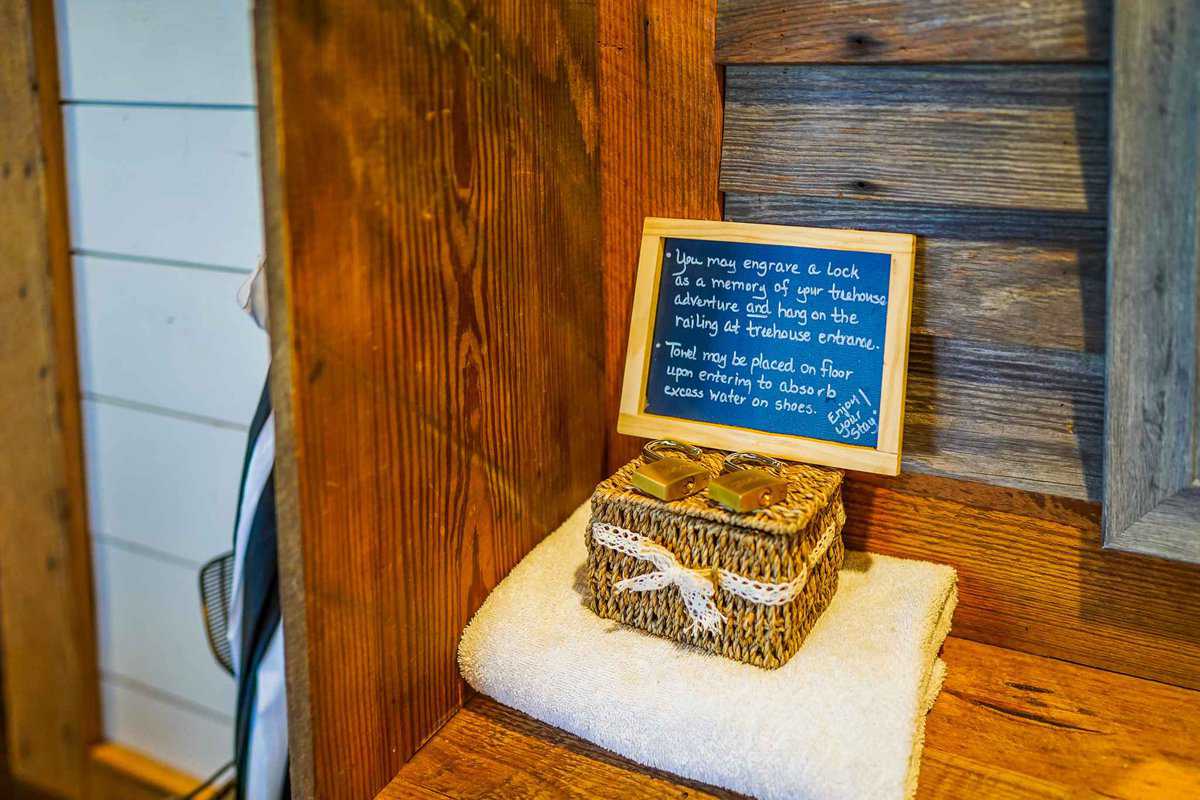 • You may engrave a Lock
as a memory of your treehouse
adventure and hang on the
railing at treehouse entrance.
• Towel may be placed on floor
upon entering to absorb
excess water on shoes.
Enjoy
your
stay!